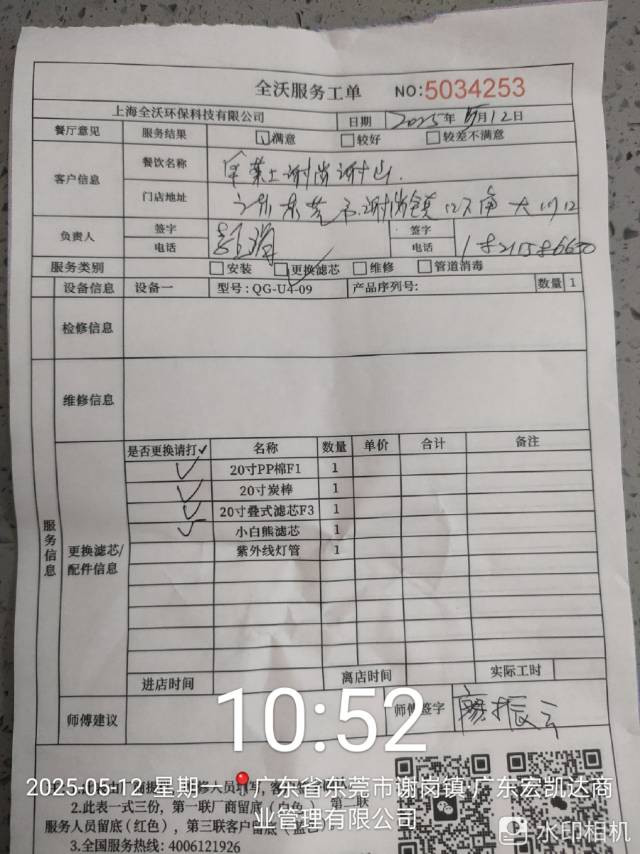 全沃服务工单 NO:5034253
上海全沃环保科技有限公司 日期 2025年5月12日
餐厅意见 服务结果 ☑满意 □较好 □较差不满意
客户信息 餐饮名称
门店地址 东莞市谢岗镇
负责人 签字 签字
电话 电话
服务类别 □安装 ☑更换滤芯 □维修 □管道消毒
设备信息 设备一 型号:QG-U4-09 产品序列号: 数量 1
检修信息
维修信息
服务信息
更换滤芯/配件信息
是否更换请打✓ 名称 数量 单价 合计 备注
✓ 20寸PP棉F1 1
✓ 20寸炭棒 1
✓ 20寸叠式滤芯F3 1
✓ 小白熊滤芯 1
紫外线灯管 1
进店时间 离店时间 实际工时
师傅建议 师傅签字 振云
10:52
2025-05-12 星期一 广东省东莞市谢岗镇·广东宏凯达商业管理有限公司
2.此表一式三份，第一联厂商留底(白色)，第二联
服务人员留底(红色)，第三联客户留底(蓝色)。
3.全国服务热线: 4006121926
水印相机